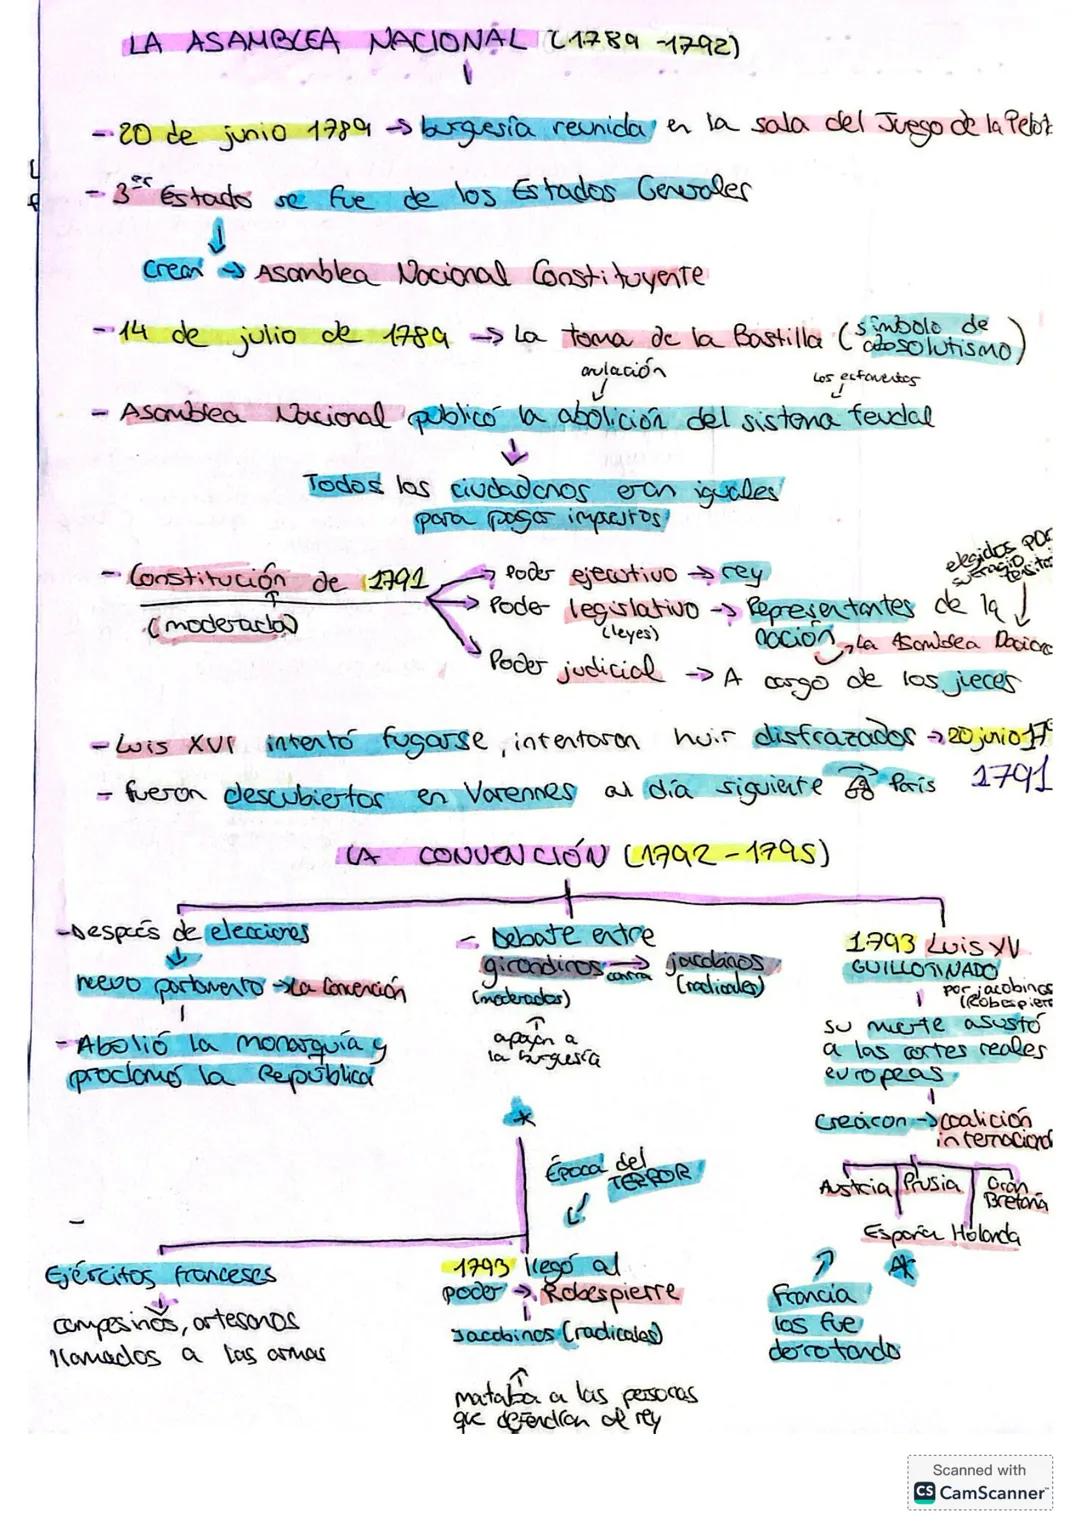 LA ASAMBLEA NACIONAL (1789-1792)
- 20 de junio 1789 → burguesía reunida en la sala del Juego de la Pelot
- 3er Estado se fue de los Estados Generales
crean → Asamblea Nacional Constituyente
- 14 de julio de 1789 → La toma de la Bastilla (símbolo de absolutismo)
anulación
- Asamblea Nacional publicó la abolición del sistema feudal
Todos los ciudadanos eran iguales
para pagar impuestos
- Constitución de 1791
(moderada)
→ Poder ejecutivo → rey
→ Poder legislativo → Representantes de la nación → La Asamblea Nacion
(leyes)
elegidos por
sufragio
Poder judicial → A cargo de los jueces
- Luis XVI intentó fugarse, intentaron huir disfrazados → 20 junio 17
1791
- fueron descubiertos en Varennes al día siguiente París
LA CONVENCIÓN (1792-1795)
- Después de elecciones
nuevo parlamento → La Convención
- Abolió la monarquía y
proclamó la República
- Debate entre
girondinos contra → jacobinos
(moderados) (radicales)
apoyan a
la burguesía
1793 Luis XV
GUILLOTINADO
por jacobinos
(Robespierr
su muerte asustó
a las cortes reales
europeas
Crearon → coalición
internacional
Austria Prusia Gran Bretaña
España Holanda
*
Francia
las fue
derrotando
*
Época del
TERROR
Ejércitos franceses
campesinos, artesanos
llamados a las armas
1793 llegó al
poder → Robespierre
Jacobinos (radicales)
mataba a las personas
que defendían al rey
Scanned with
CS CamScanner